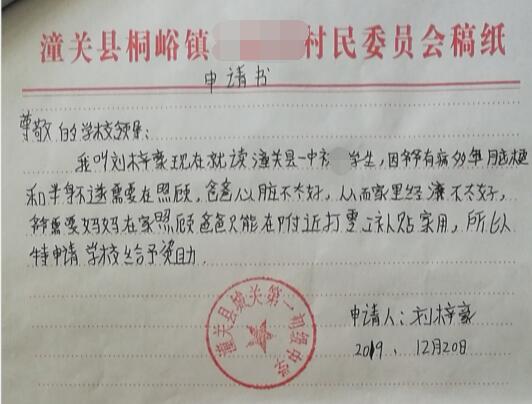 潼关县桐峪镇 村民委员会稿纸
申请书
尊敬的学校领导:
我叫刘梓豪现在就读潼关县一中 学生,因爷爷有病多年脑梗
和半身不遂需要在照顾,爸爸心脏不太好,从而家里经济不太好,
爷爷需要妈妈在家照顾爸爸只能在附近打零工补贴家用,所以
特申请学校给予资助.
潼关县城关第一初级中学
申请人:刘梓豪
2019、12月20日